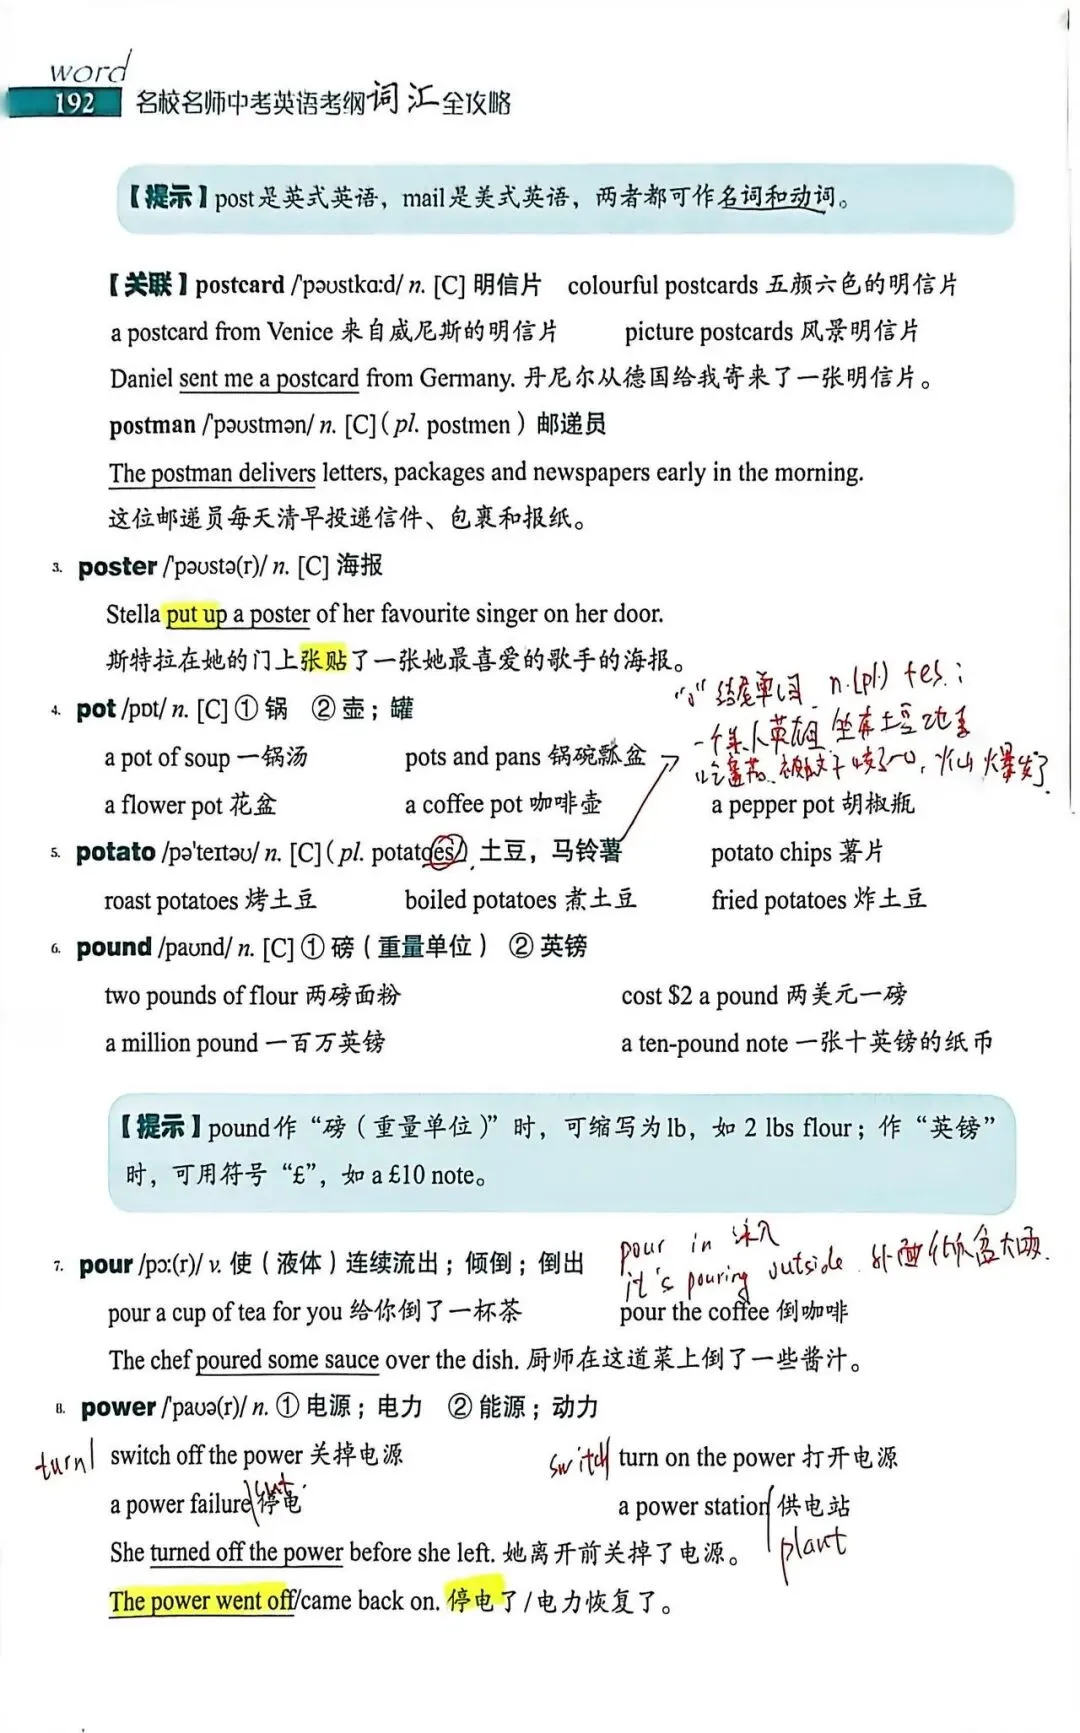 word
192 名校名师中考英语考纲词汇全攻略
【提示】post是英式英语，mail是美式英语，两者都可作名词和动词。
【关联】postcard /'pəʊstkɑːd/ n. [C] 明信片 colourful postcards 五颜六色的明信片
a postcard from Venice 来自威尼斯的明信片 picture postcards 风景明信片
Daniel sent me a postcard from Germany. 丹尼尔从德国给我寄来了一张明信片。
postman /'pəʊstmən/ n. [C]（pl. postmen）邮递员
The postman delivers letters, packages and newspapers early in the morning.
这位邮递员每天清早投递信件、包裹和报纸。
3. poster /'pəʊstə(r)/ n. [C] 海报
Stella put up a poster of her favourite singer on her door.
斯特拉在她的门上张贴了一张她最喜爱的歌手的海报。
"o"结尾单词 n.(pl.) +es：
4. pot /pɒt/ n. [C] ① 锅 ② 壶；罐
一个黑人英雄坐在土豆地里
a pot of soup 一锅汤 pots and pans 锅碗瓢盆
吃番茄，被蚊子咬了一口，火山爆发了.
a flower pot 花盆 a coffee pot 咖啡壶 a pepper pot 胡椒瓶
5. potato /pə'teɪtəʊ/ n. [C]（pl. potatoes）土豆，马铃薯 potato chips 薯片
roast potatoes 烤土豆 boiled potatoes 煮土豆 fried potatoes 炸土豆
6. pound /paʊnd/ n. [C] ① 磅（重量单位） ② 英镑
two pounds of flour 两磅面粉 cost $2 a pound 两美元一磅
a million pound 一百万英镑 a ten-pound note 一张十英镑的纸币
【提示】pound作“磅（重量单位）”时，可缩写为lb，如 2 lbs flour；作“英镑”
时，可用符号“£”，如 a £10 note。
pour in 涌入
7. pour /pɔː(r)/ v. 使（液体）连续流出；倾倒；倒出
it's pouring outside 外面下瓢盆大雨.
pour a cup of tea for you 给你倒了一杯茶 pour the coffee 倒咖啡
The chef poured some sauce over the dish. 厨师在这道菜上倒了一些酱汁。
8. power /'paʊə(r)/ n. ① 电源；电力 ② 能源；动力
turn switch off the power 关掉电源 switch turn on the power 打开电源
cut
a power failure 停电 a power station 供电站
plant
She turned off the power before she left. 她离开前关掉了电源。
The power went off/came back on. 停电了/电力恢复了。